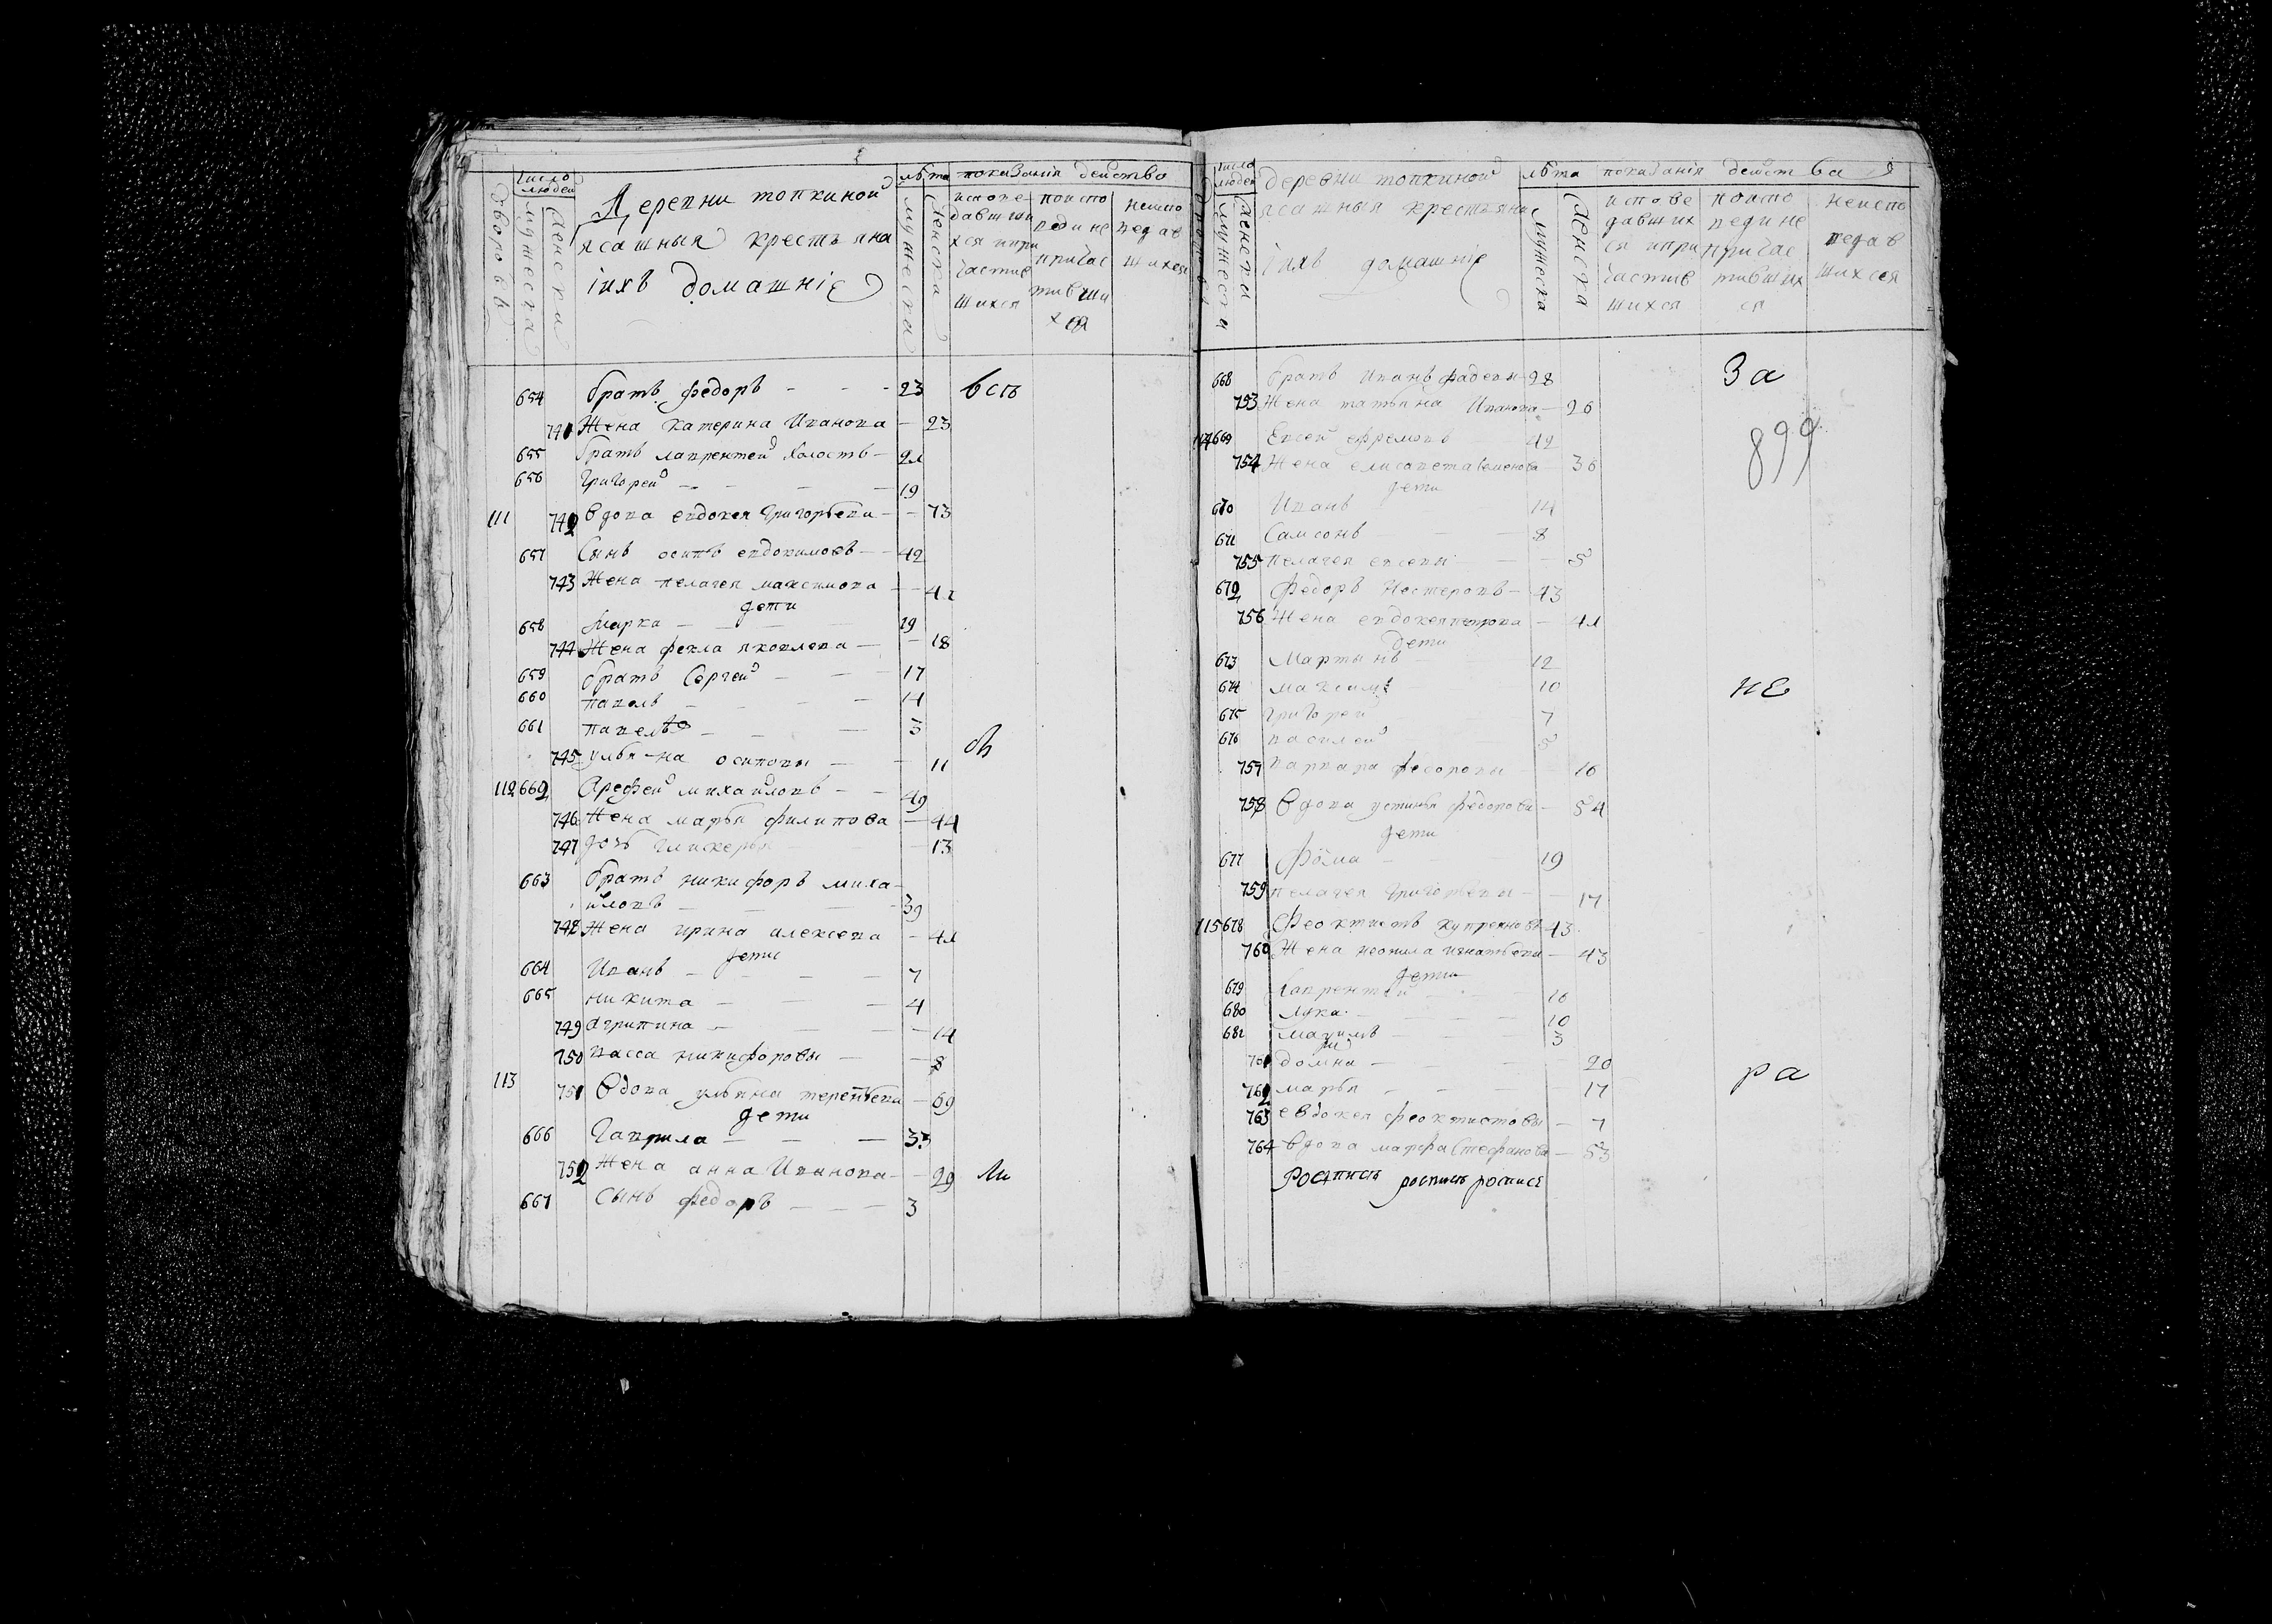 число людей
дворовъ
мужеска
женска
Деревни топкиной
ясашныя крестьяна
ихъ домашніе
лѣта
мужеска
женска
показанія действо
испове
давших
ся и при
частив
шихся
по испо
веди не
причас
тивши
хся
неиспо
ведав
шихся
654 братъ Федоръ - - - 23 всѣ
741 Жена катерина Иванова - 23
655 братъ лаврентей холостъ - 21
656 Григорей - - - 19
111 742 вдова евдокея Григорьева - - 73
657 Сынъ осипъ евдокимовъ - - 42
743 Жена пелагея максимова - - 41
дети
658 Марка - - - 19
744 Жена фекла яковлева - - 18
659 братъ Сергей - - 17
660 павелъ - - - 14
661 павелъ - - - 3
745 ульяна осиповы - - 11
112 662 Арефей михайловъ - - 49
746 Жена марья филипова - 44
747 дочь гликерья - - 13
663 братъ никифоръ миха-
йловъ - - - 39
748 Жена ирина алексева - 41
дети
664 Иванъ - - - 7
665 никита - - - 4
749 агрипина - - - 14
750 васса никифоровы - - 8
113 751 вдова ульяна терентьева - 69
дети
666 Гаврила - - - 33
752 Жена анна Иванова - - 29 ли
667 сынъ федоръ - - - 3
число людей
мужеска
женска
деревни топкиной
ясашныя крестьяна
ихъ домашніе
лѣта
мужеска
женска
показанія действа
испове
давших
ся и при
частив
шихся
по испо
веди не
причас
тивших
ся
неиспо
ведав
шихся
668 братъ Иванъ фадеевы - 28 За
753 Жена татьяна Иванова - 26
899
114 669 Евсей ефремовъ - 42
754 Жена елисавета семенова 36
дети
670 Иванъ 14
671 Самсонъ - - 8
755 пелагея евсевы - - 5
672 Федоръ Нестеровъ - 43
756 Жена евдокея петрова - 41
дети
673 Мартынъ - 12
674 максимъ - 10 не
675 григорей 7
676 василей 5
757 варвара федоровы 16
758 вдова устинья федорова - 54
дети
677 фома - 19
759 пелагея григорьевы - - 17
115 678 Феоктистъ купреяновъ 43
760 Жена неонила игнатьева - 43
дети
679 лаврентей - - 16
680 лука - - 10
681 максимъ - - 3
761 домна - - 20
762 марья - - 17 ра
763 евдокея феоктистовы - 7
764 вдова марфа Стефанова - 53
Роспись роспись рописе